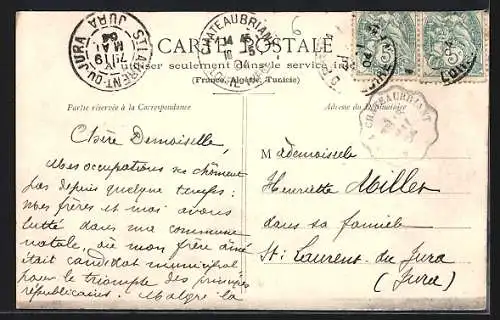 ST LAURENT-DU-JURA
JURA
7E/19
MAI
04
CHATEAUBRIANT
14
CARTE POSTALE
(France, Algérie, Tunisie)
CHATEAUBRIANT
Partie réservée à la Correspondance
Adresse du Destinataire
Chère Demoiselle,
Mes occupations ne chôment
pas depuis quelque temps :
mes frères et moi avons
lutté dans ma commune
natale, où mon frère aîné
était candidat municipal
pour le triomphe des principes
républicains. Malgré la
Mademoiselle
Henriette Millet
dans sa famille
St. Laurent du Jura
(Jura)